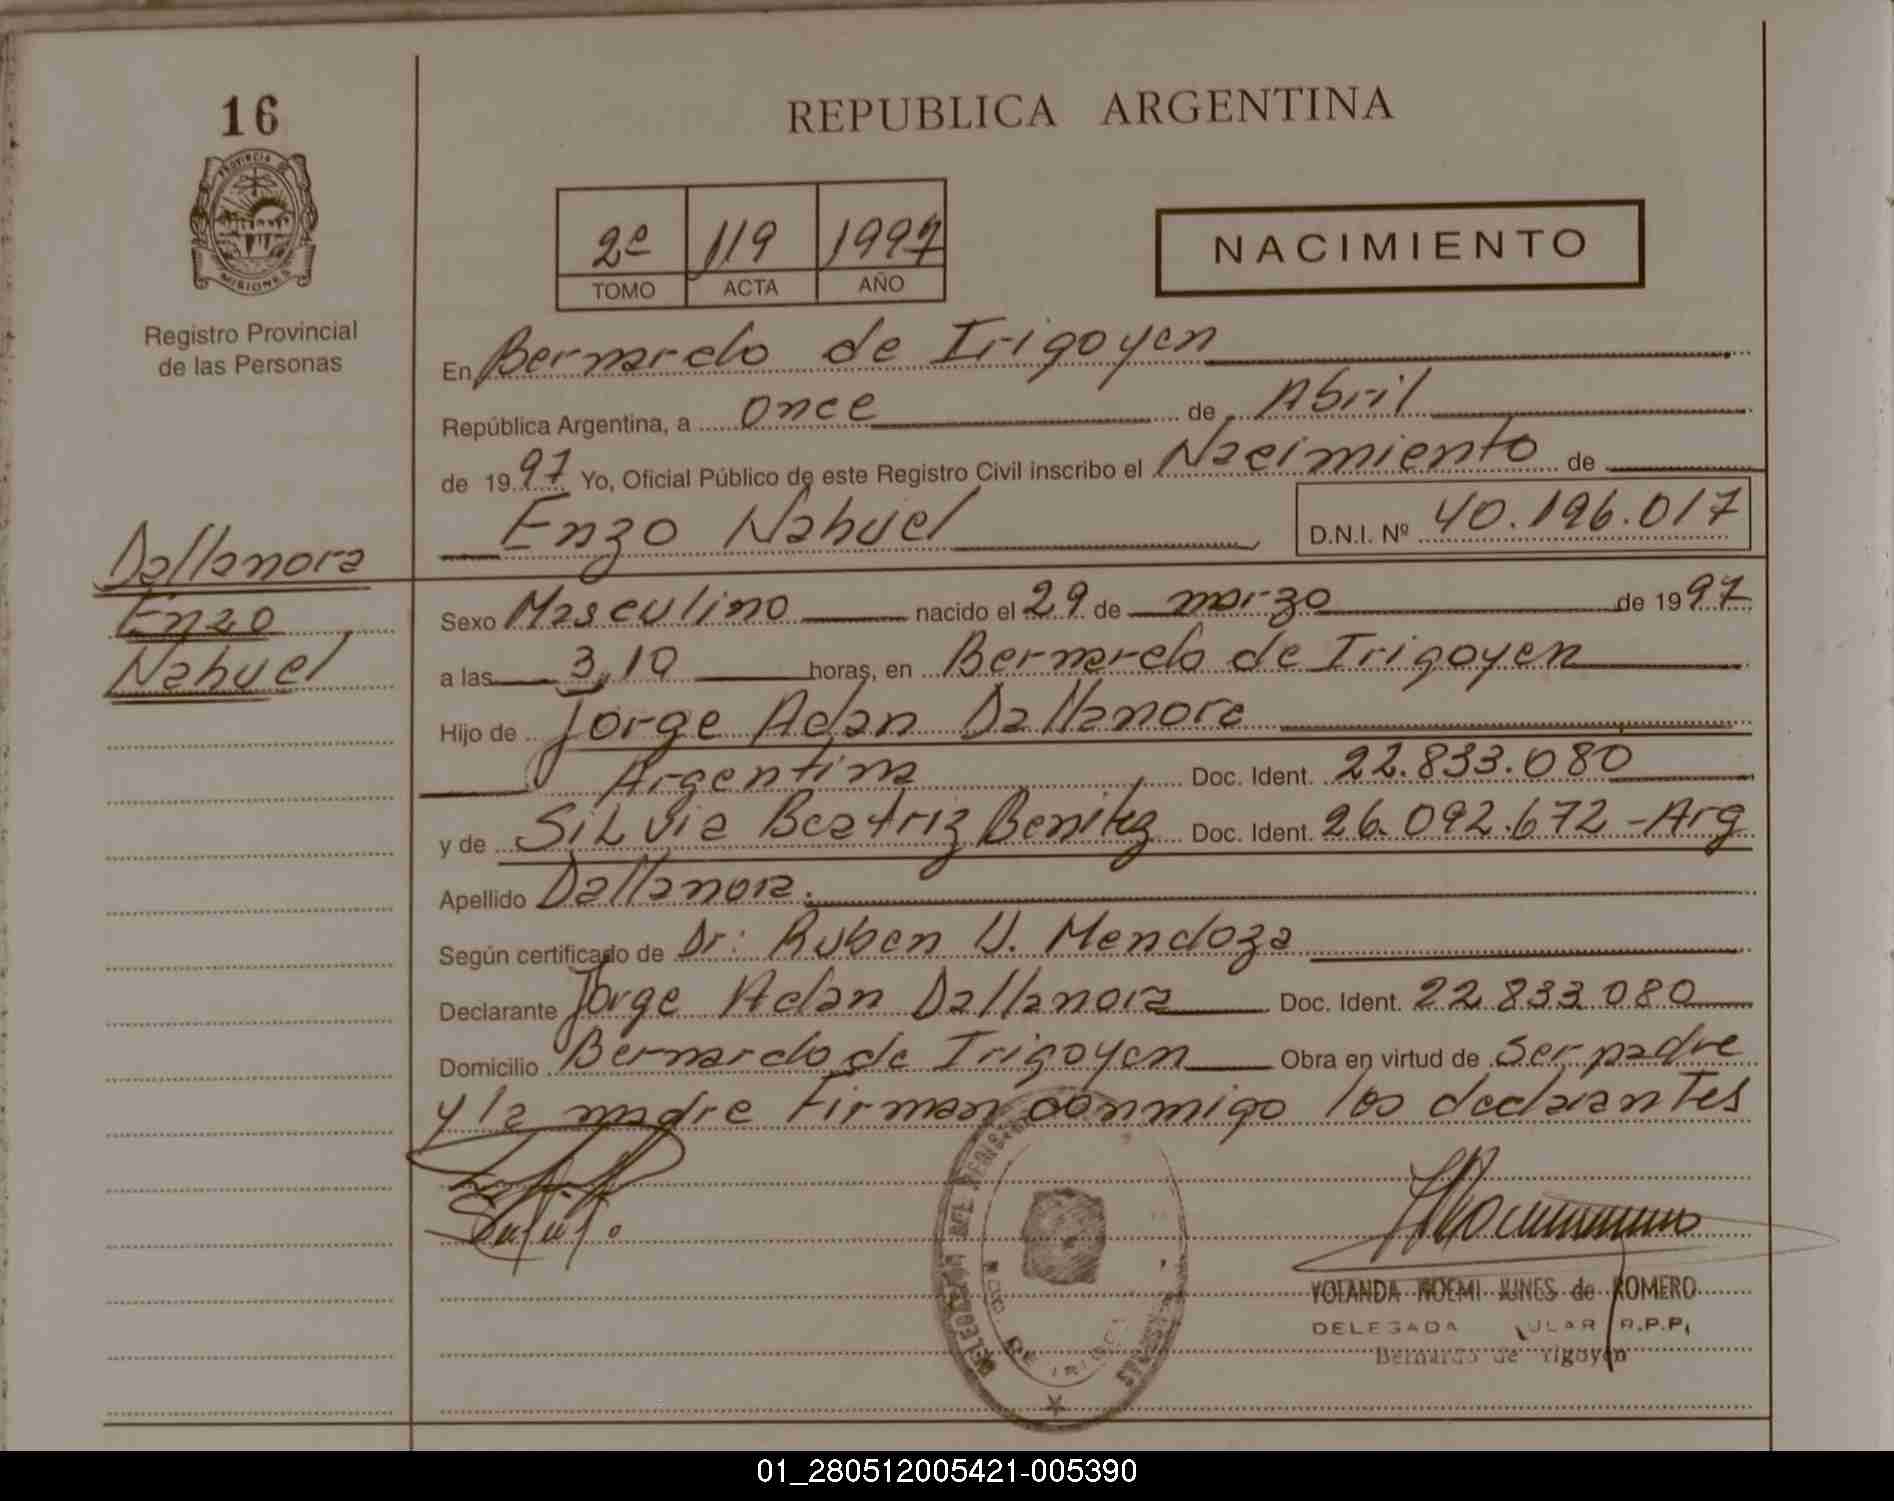 16
PROVINCIA DE
MISIONES
Registro Provincial
de las Personas
REPUBLICA ARGENTINA
2º 119 1997
TOMO ACTA AÑO
NACIMIENTO
En Bernardo de Irigoyen
República Argentina, a once de Abril
de 1997 Yo, Oficial Público de este Registro Civil inscribo el Nacimiento de
Enzo Nahuel D.N.I. Nº 40.196.017
Dallanora
Enzo
Nahuel
Sexo Masculino nacido el 29 de marzo de 1997
a las 3,10 horas, en Bernardo de Irigoyen
Hijo de Jorge Adan Dallanora
Argentina Doc. Ident. 22.833.080
y de Silvia Beatriz Benitez Doc. Ident. 26.092.672 - Arg
Apellido Dallanora.
Según certificado de Dr: Ruben U. Mendoza
Declarante Jorge Adan Dallanora Doc. Ident. 22.833.080
Domicilio Bernardo de Irigoyen Obra en virtud de Ser padre
y la madre Firman conmigo los declarantes
YOLANDA NOEMI JUNES de ROMERO
DELEGADA R.P.P.
Bernardo de Yrigoyen
01_280512005421-005390